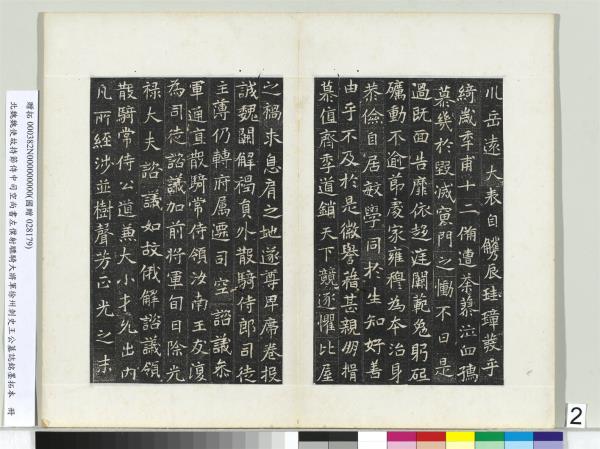 川岳遠大表自觿辰珪璋發乎
綺歲年甫十二備遭荼蓼泣血孺
慕幾於毀滅賓門之慟不曰是
過既面告靡依趍庭闕範克躬砥
礪動不逾節處家雍穆為本治身
恭儉自居敏學同於生知好善
由乎不及於是徽譽藉甚親朋揖
慕值齊季道銷天下競逐懼比屋
之禍求息肩之地遂尊卑席卷投
誠魏闕解褐員外散騎侍郎司徒
主薄仍轉府屬遷司空諮議參
軍通直散騎常侍領汝南王友復
為司徒諮議加前將軍旬日除光
祿大夫諮議如故俄解諮議領
散騎常侍公道兼大小才允出內
凡所經涉並樹聲芳正光之末
贈拓 000382N000000000(國贈 028179)
北魏魏使故持節侍中司空尚書左僕射驃騎大將軍徐州刺史王公墓誌銘墨拓本 冊
2